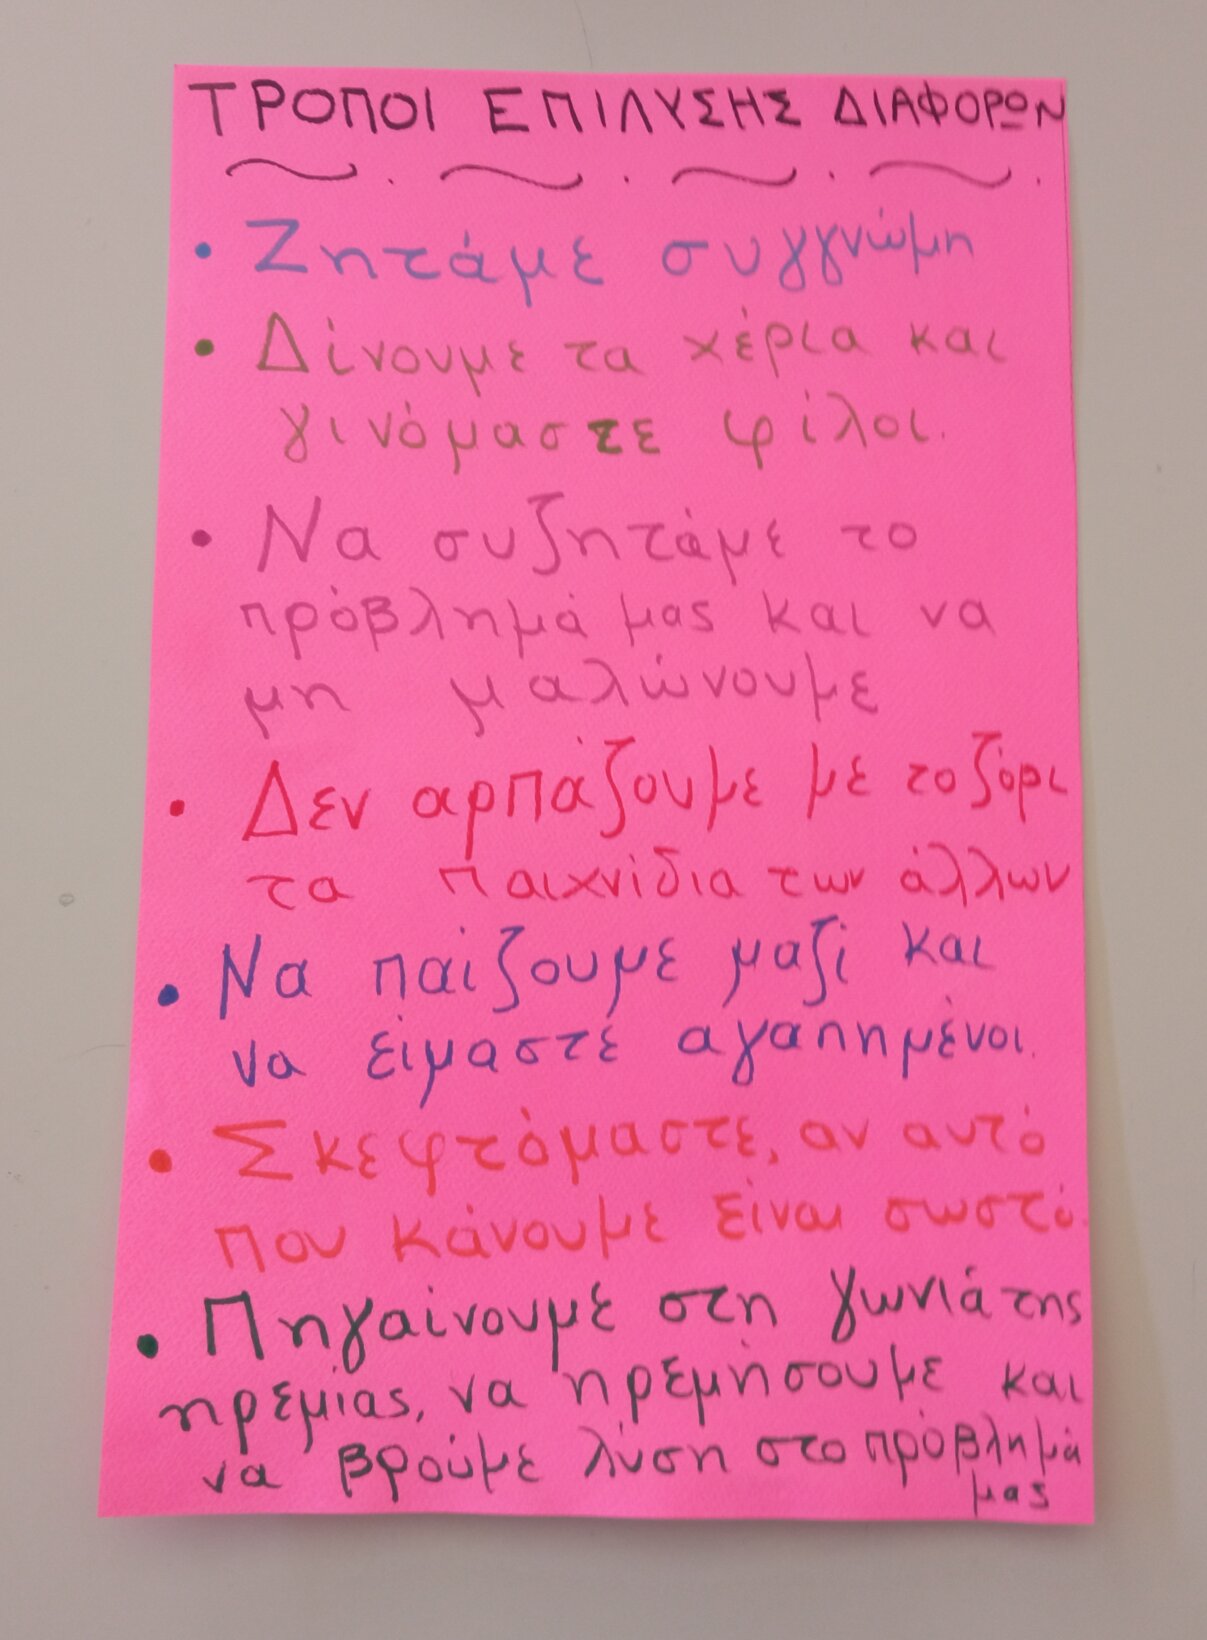 ΤΡΟΠΟΙ ΕΠΙΛΥΣΗΣ ΔΙΑΦΟΡΩΝ
• Ζητάμε συγγνώμη
• Δίνουμε τα χέρια και
γινόμαστε φίλοι.
• Να συζητάμε το
πρόβλημά μας και να
μη μαλώνουμε
• Δεν αρπάζουμε με το ζόρι
τα παιχνίδια των άλλων
• Να παίζουμε μαζί και
να είμαστε αγαπημένοι.
• Σκεφτόμαστε, αν αυτό
που κάνουμε είναι σωστό.
• Πηγαίνουμε στη γωνιά της
ηρεμίας, να ηρεμήσουμε και
να βρούμε λύση στο πρόβλημά
μας